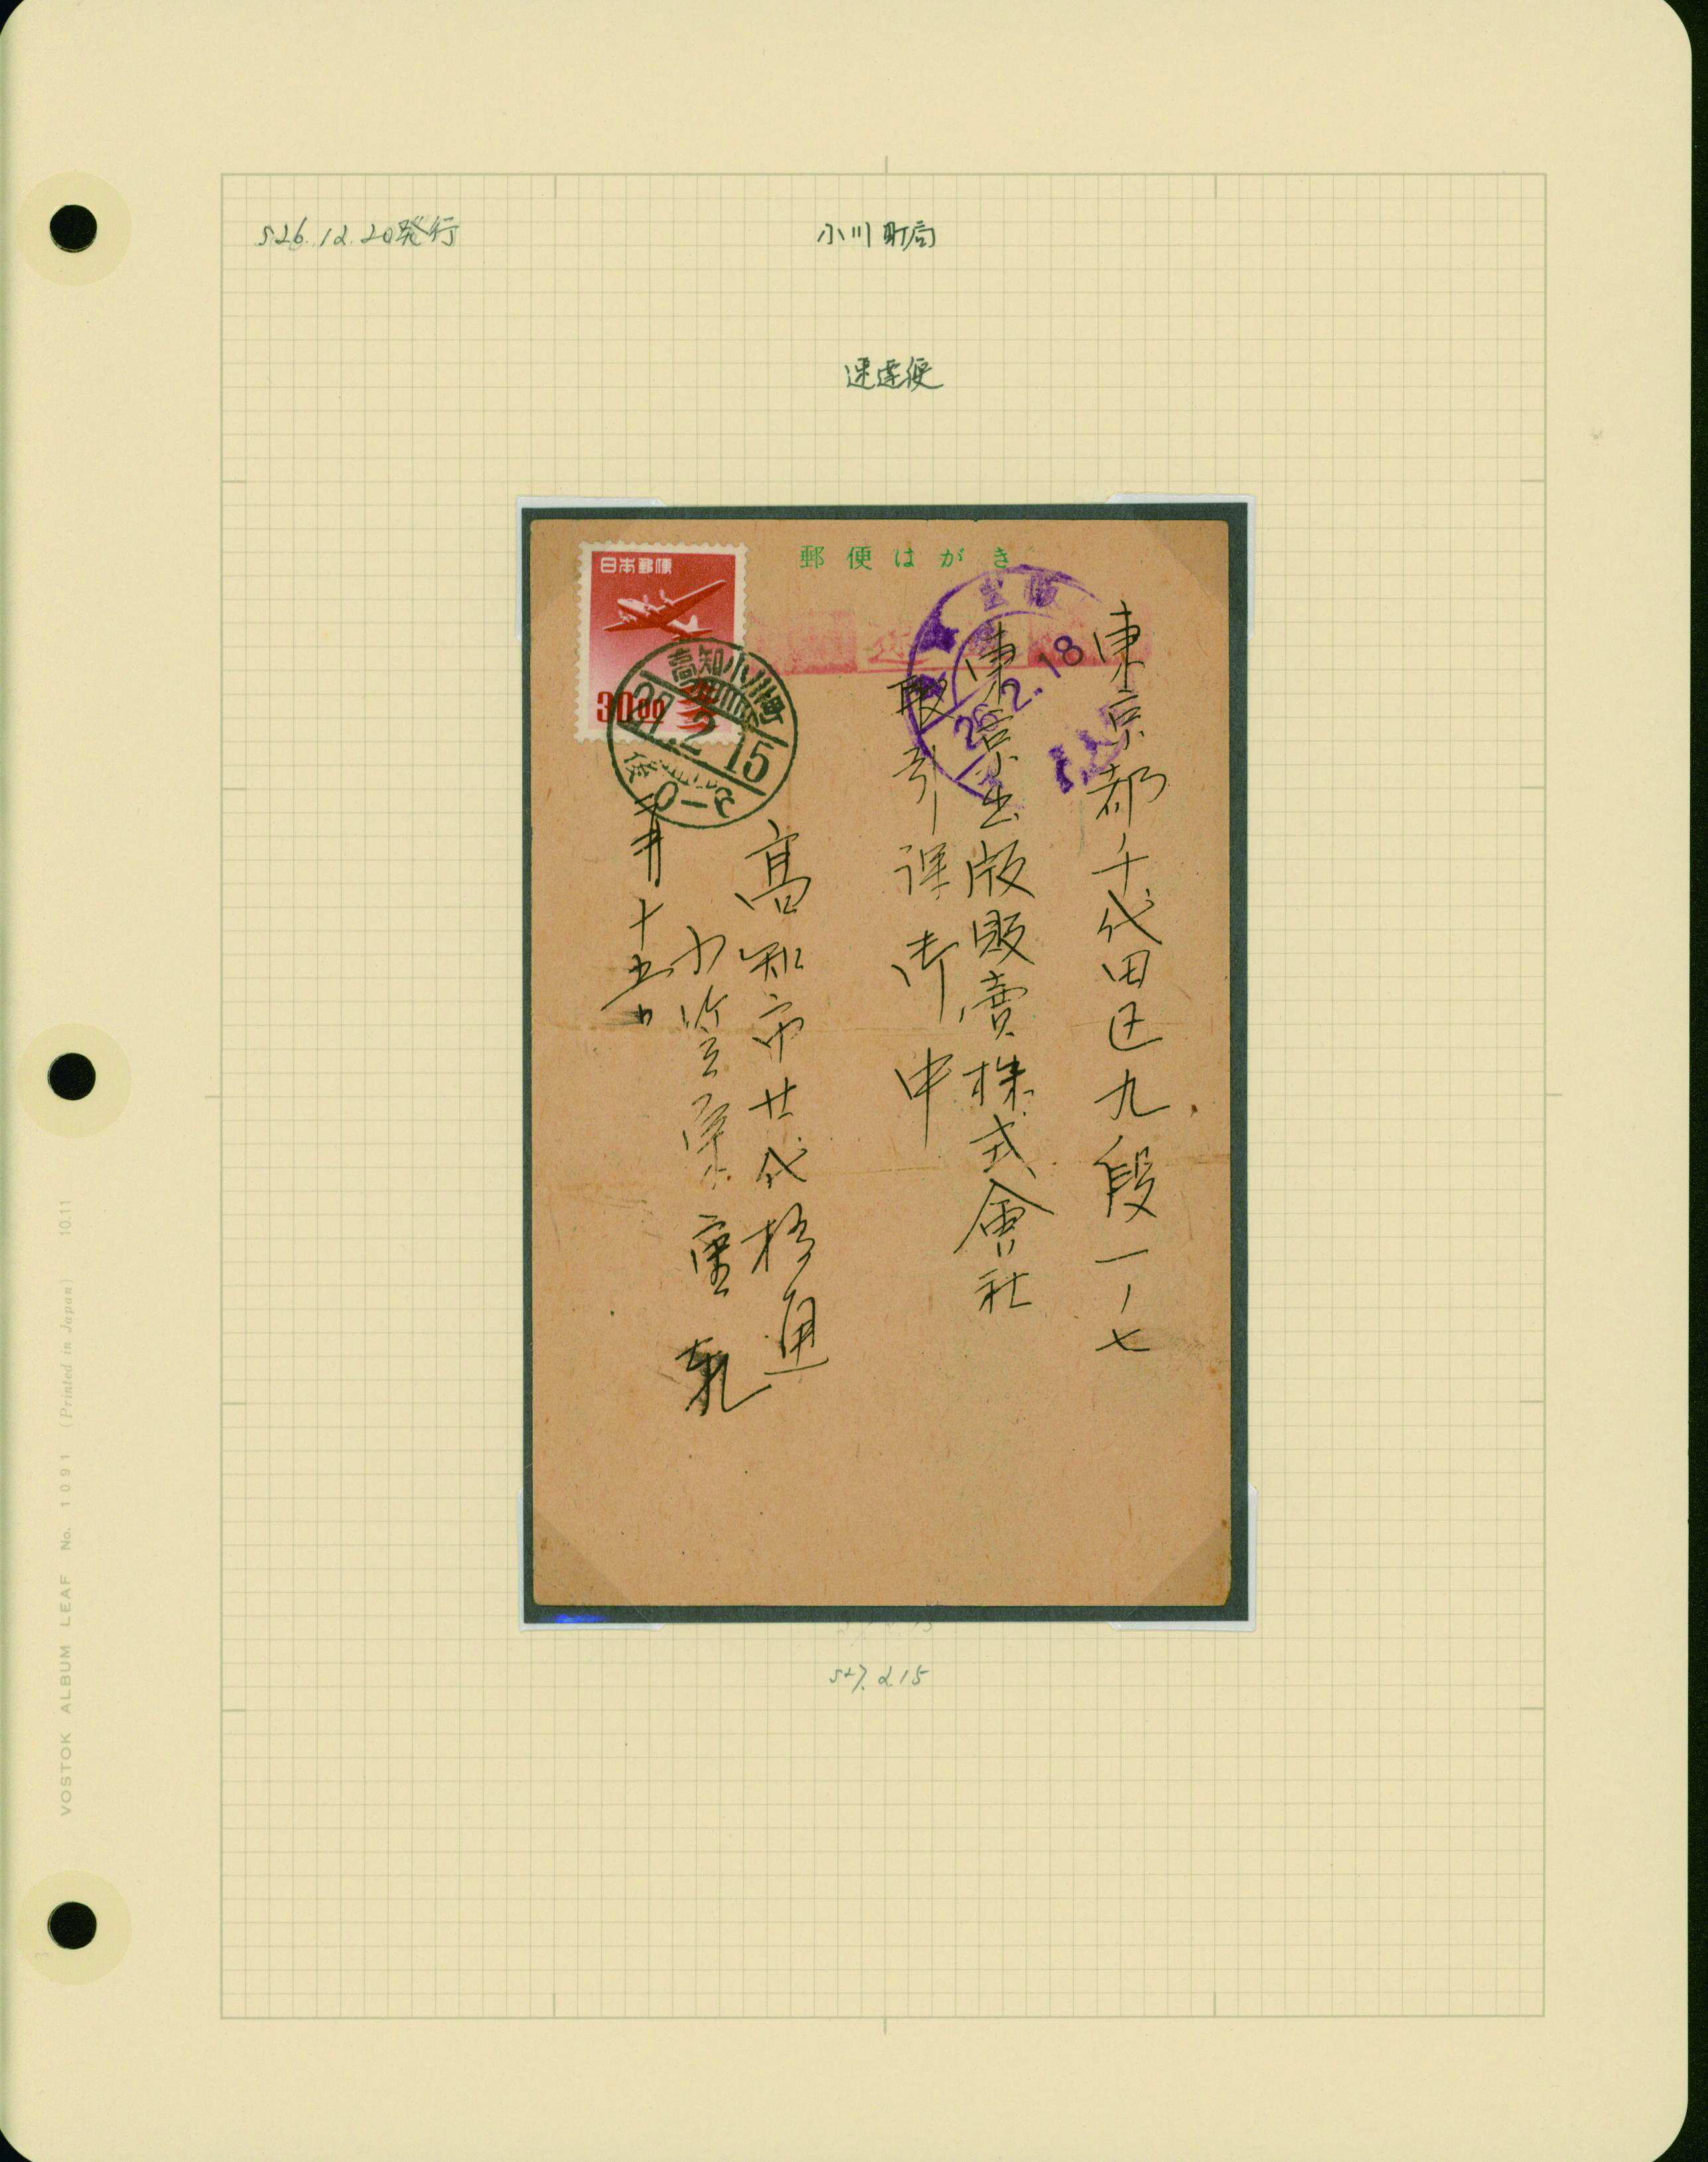 S26.12.20発行
小川町局
速達便
郵便はがき
日本郵便
30.00
高知小川町
27.2.15
后0-6
出版
26.2.18
東京都千代田区九段一ノ七
東京出版販賣株式會社
取引課御中
高知市廿代橋通
二月十五日
S27.2.15
VOSTOK ALBUM LEAF No. 1091 (Printed in Japan) 10.11